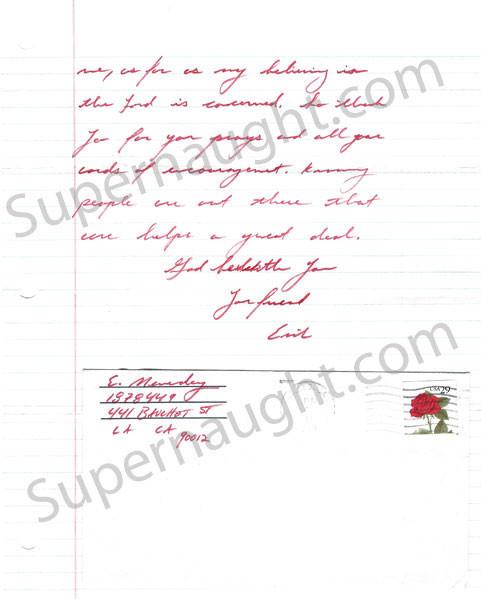 me, as far as my believing in
the Lord is concerned. So thank
You for your prays and all your
words of encouragement. Knowing
people are out there that
care helps a great deal.
God be with You
Your friend
Erik
E. Menendez
1878449
441 BAUCHET ST
LA CA
90012
USA 29
Supernaught.com
Supernaught.com
Supernaught.com